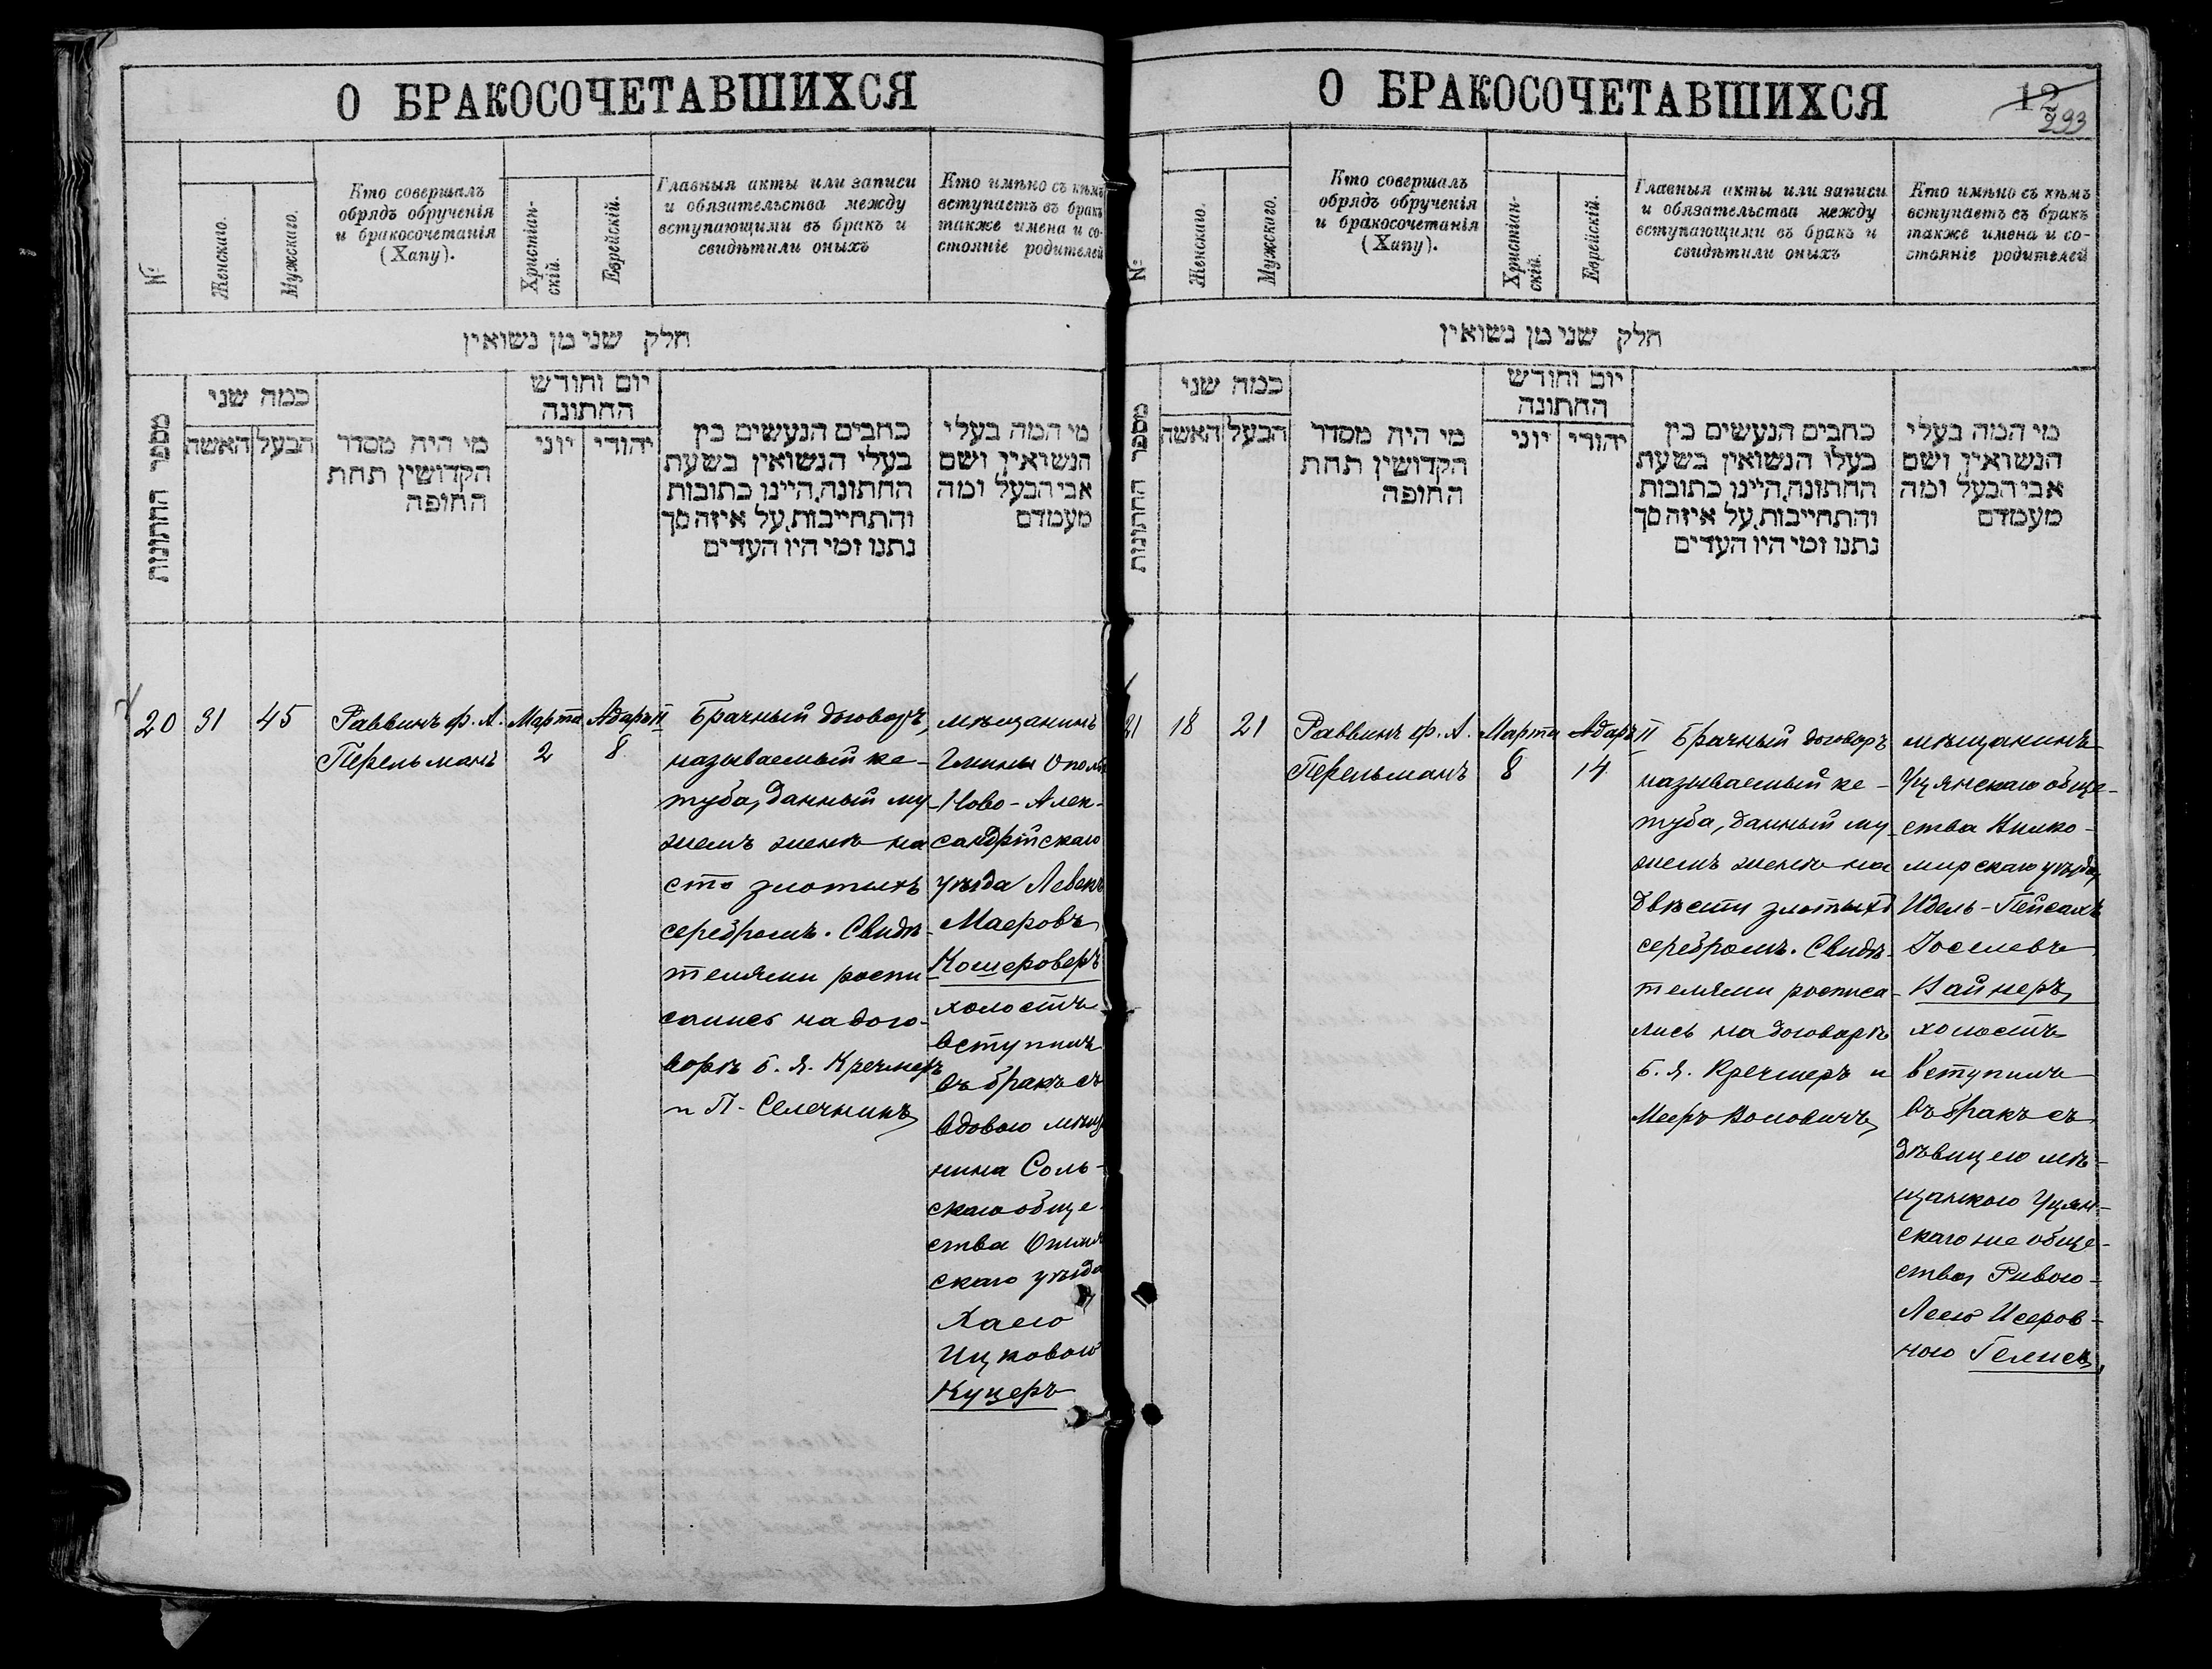 О БРАКОСОЧЕТАВШИХСЯ
№
Женскаго.
Мужскаго.
Кто совершалъ
обрядъ обрученія
и бракосочетанія
(Хапу).
Христіан-
скій.
Еврейскій.
Главныя акты или записи
и обязательства между
вступающими въ бракъ и
свидѣтили оныхъ
Кто имѣно съ кѣмъ
вступаетъ въ бракъ
также имена и со-
стояніе родителей
חלק שני מן נשואין
מספר החתונות
כמה שני
האשה
הבעל
מי היה מסדר
הקדושין תחת
החופה
יום וחודש
החתונה
יוני
יהודי
כתבים הנעשים בין
בעלי הנשואין בשעת
החתונה, היינו כתובות
והתחייבות, על איזה סך
נתנו ומי היו העדים
מי המה בעלי
הנשואין, ושם
אבי הבעל ומה
מעמדם
20
31
45
Раввинъ Ф. А.
Перельманъ
Марта
2
Адаръ II
8
Брачный договоръ,
называемый ке-
туба, данный му-
жемъ женѣ на
сто злотыхъ
серебромъ. Свидѣ-
телями роспи-
сались на дого-
ворѣ Б. Я. Кречмеръ
и П. Селечникъ
мѣщанинъ
Гмины
Ново-Алек-
сандрійскаго
уѣзда
Маеровъ
Кошероверъ
холостъ
вступилъ
въ бракъ съ
вдовою
нина Соль-
скаго обще-
ства
скаго уѣзда
Хаею
Ицковою
Куцеръ
О БРАКОСОЧЕТАВШИХСЯ
12
293
№
Женскаго.
Мужскаго.
Кто совершалъ
обрядъ обрученія
и бракосочетанія
(Хапу).
Христіан-
скій.
Еврейскій.
Главныя акты или записи
и обязательства между
вступающими въ бракъ и
свидѣтили оныхъ
Кто имѣно съ кѣмъ
вступаетъ въ бракъ
также имена и со-
стояніе родителей
חלק שני מן נשואין
מספר החתונות
כמה שני
האשה
הבעל
מי היה מסדר
הקדושין תחת
החופה
יום וחודש
החתונה
יוני
יהודי
כתבים הנעשים בין
בעלי הנשואין בשעת
החתונה, היינו כתובות
והתחייבות, על איזה סך
נתנו ומי היו העדים
מי המה בעלי
הנשואין, ושם
אבי הבעל ומה
מעמדם
21
18
21
Раввинъ Ф. А.
Перельманъ
Марта
8
Адаръ II
14
Брачный договоръ
называемый ке-
туба, данный му-
жемъ женѣ на
двѣсти злотыхъ
серебромъ. Свидѣ-
телями росписа-
лись на договорѣ
Б. Я. Кречмеръ и
Мееръ Воловичъ
мѣщанинъ
Уцянскаго обще-
ства Вилко-
мирскаго уѣзда
Идель-Пейсахъ
Іоселевъ
Вайнеръ
холостъ
вступилъ
въ бракъ съ
дѣвицею мѣ-
щанкою Уцян-
скаго же обще-
ства Ривою-
Леею Исеров-
ною Гелисъ